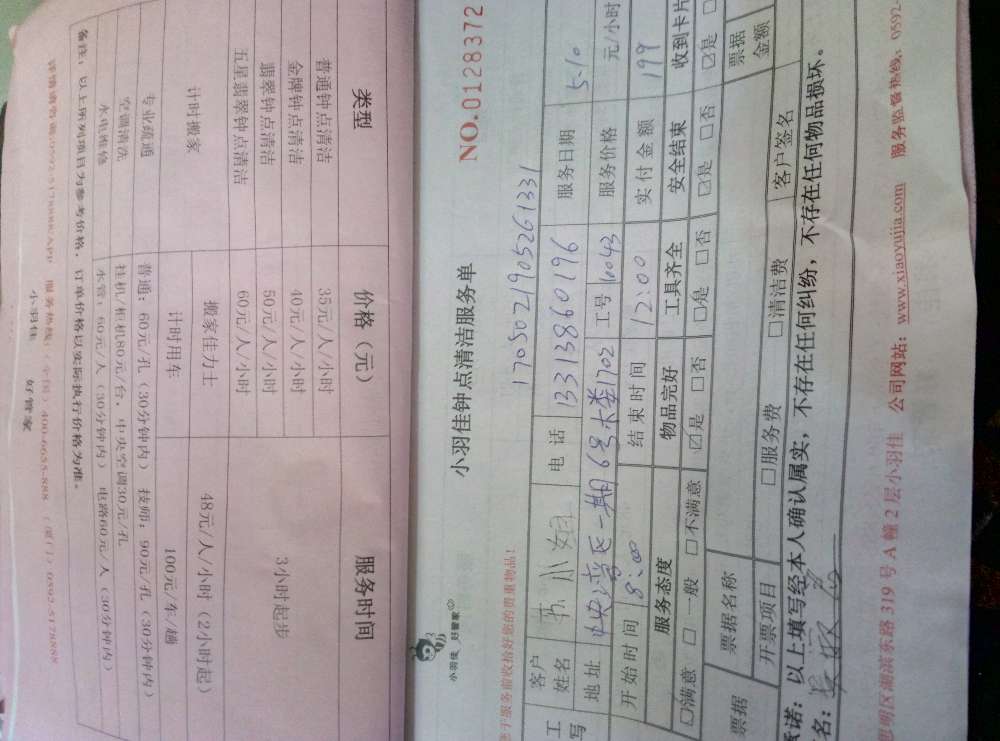 类型 价格（元） 服务时间
普通钟点清洁 35元/人/小时 3小时起步
金牌钟点清洁 40元/人/小时
翡翠钟点清洁 50元/人/小时
五星翡翠钟点清洁 60元/人/小时
计时搬家 搬家佳力士 48元/人/小时（2小时起）
计时用车 100元/车/趟
专业疏通 普通：60元/孔（30分钟内） 技师：90元/孔（30分钟内）
空调清洗 挂机/柜机80元/台，中央空调30元/孔
水电维修 水管：60元/人（30分钟内） 电路60元/人（30分钟内）
备注：以上所列项目为参考价格，订单价格以实际执行价格为准。
小羽佳 好管家
NO.0128372
小羽佳 好管家
小羽佳钟点清洁服务单
请于服务前收拾好您的贵重物品！
1705021905261331
客户姓名 苏小姐 电话 13313860196 服务日期 5.10
地址 中央湾区一期6号楼1702 工号 16043 服务价格 元/小时
开始时间 8:00 结束时间 12:00 实付金额 199
服务态度 物品完好 工具齐全 安全结束 收到卡片
☑满意 □一般 □不满意 ☑是 □否 ☑是 □否 ☑是 □否 ☑是
票据 票据名称 票据金额
开票项目 □服务费 □清洁费 客户签名
承诺：以上填写经本人确认属实，不存在任何纠纷，不存在任何物品损坏。
名：
思明区湖滨东路319号A幢2层小羽佳 公司网站：www.xiaoyujia.com 服务监督热线：0592-